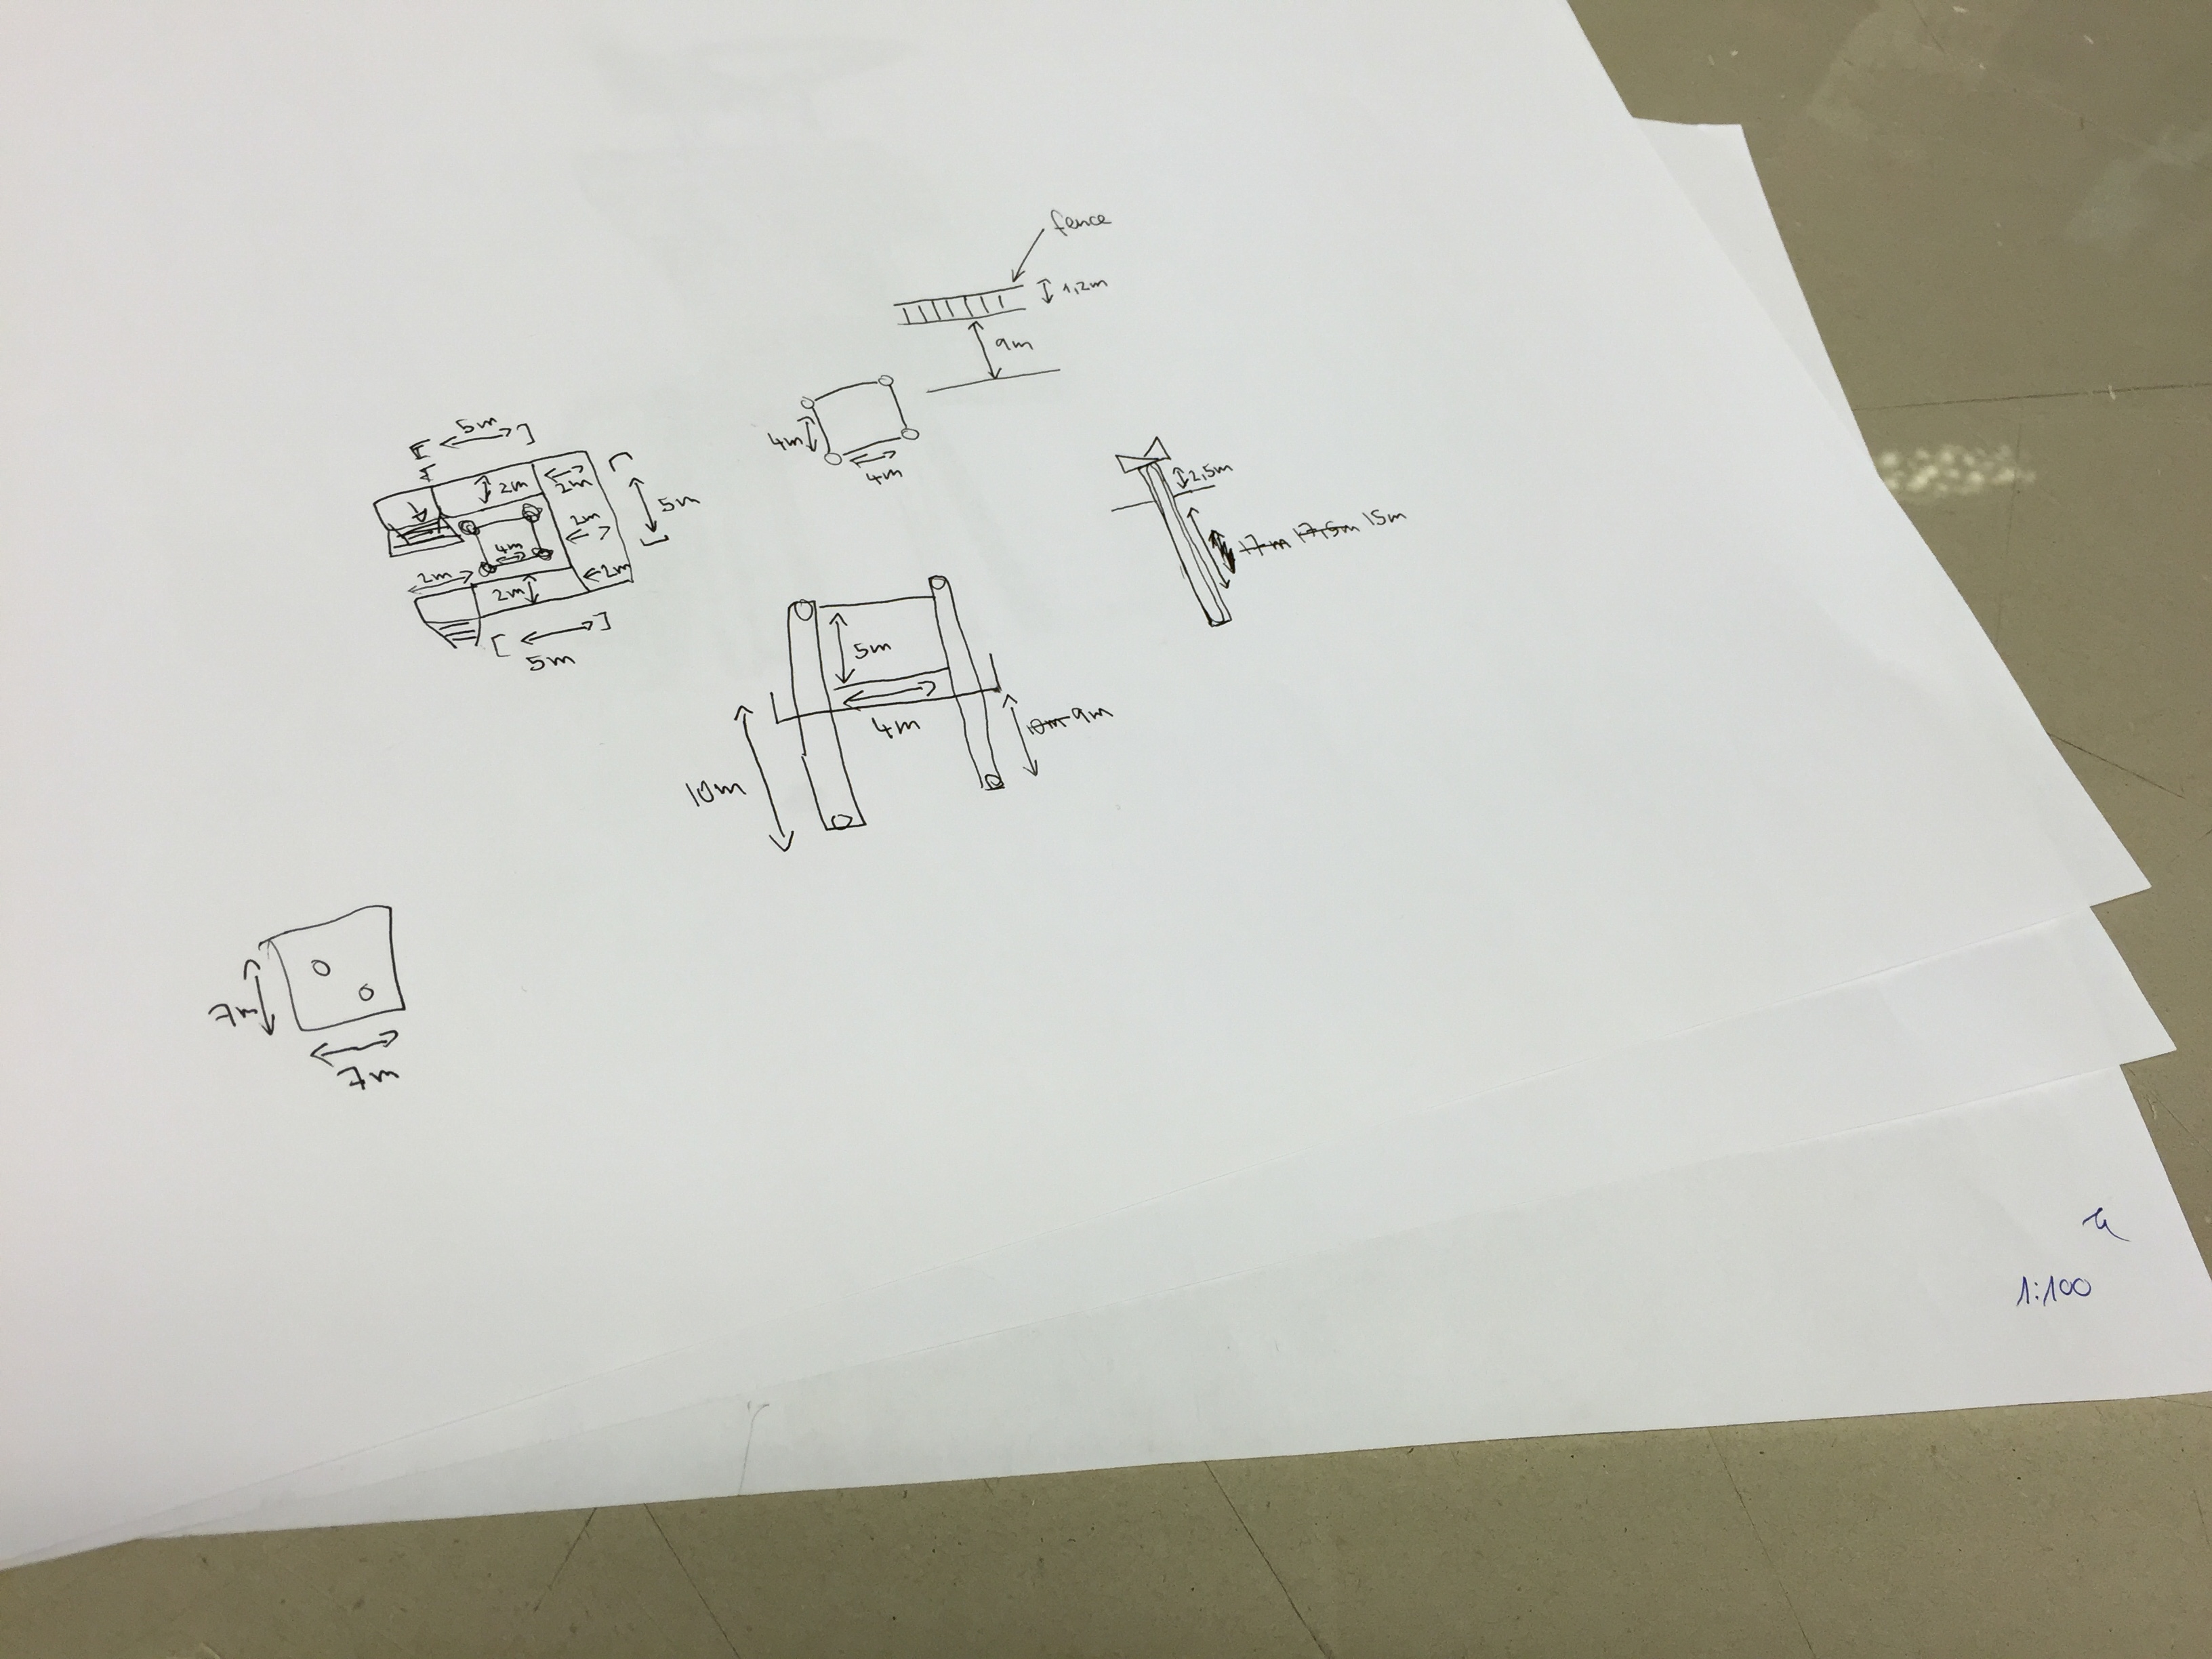 fence
1,2m
9m
4m
4m
5m
2m
2m
5m
2m
4m
2m
2m
2m
5m
2,5m
17m 17,5m 15m
5m
4m
10m 9m
10m
7m
7m
1:100